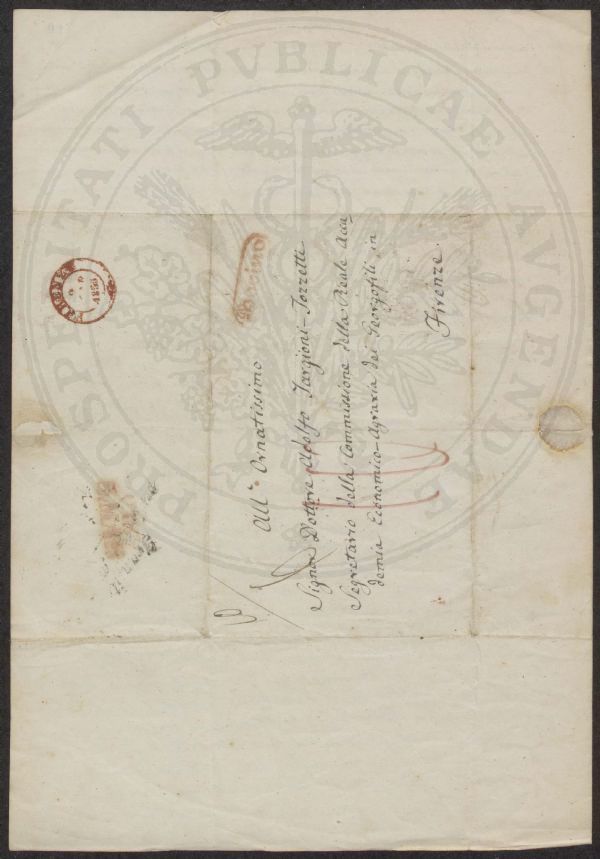 PROSPERITATI PVBLICAE AVGENDAE
All.º Ornatissimo
Signor Dottore Adolfo Targioni-Tozzetti
Segretario della Commissione della Reale Acca-
demia Economico-Agraria dei Georgofili in
Firenze.
1856